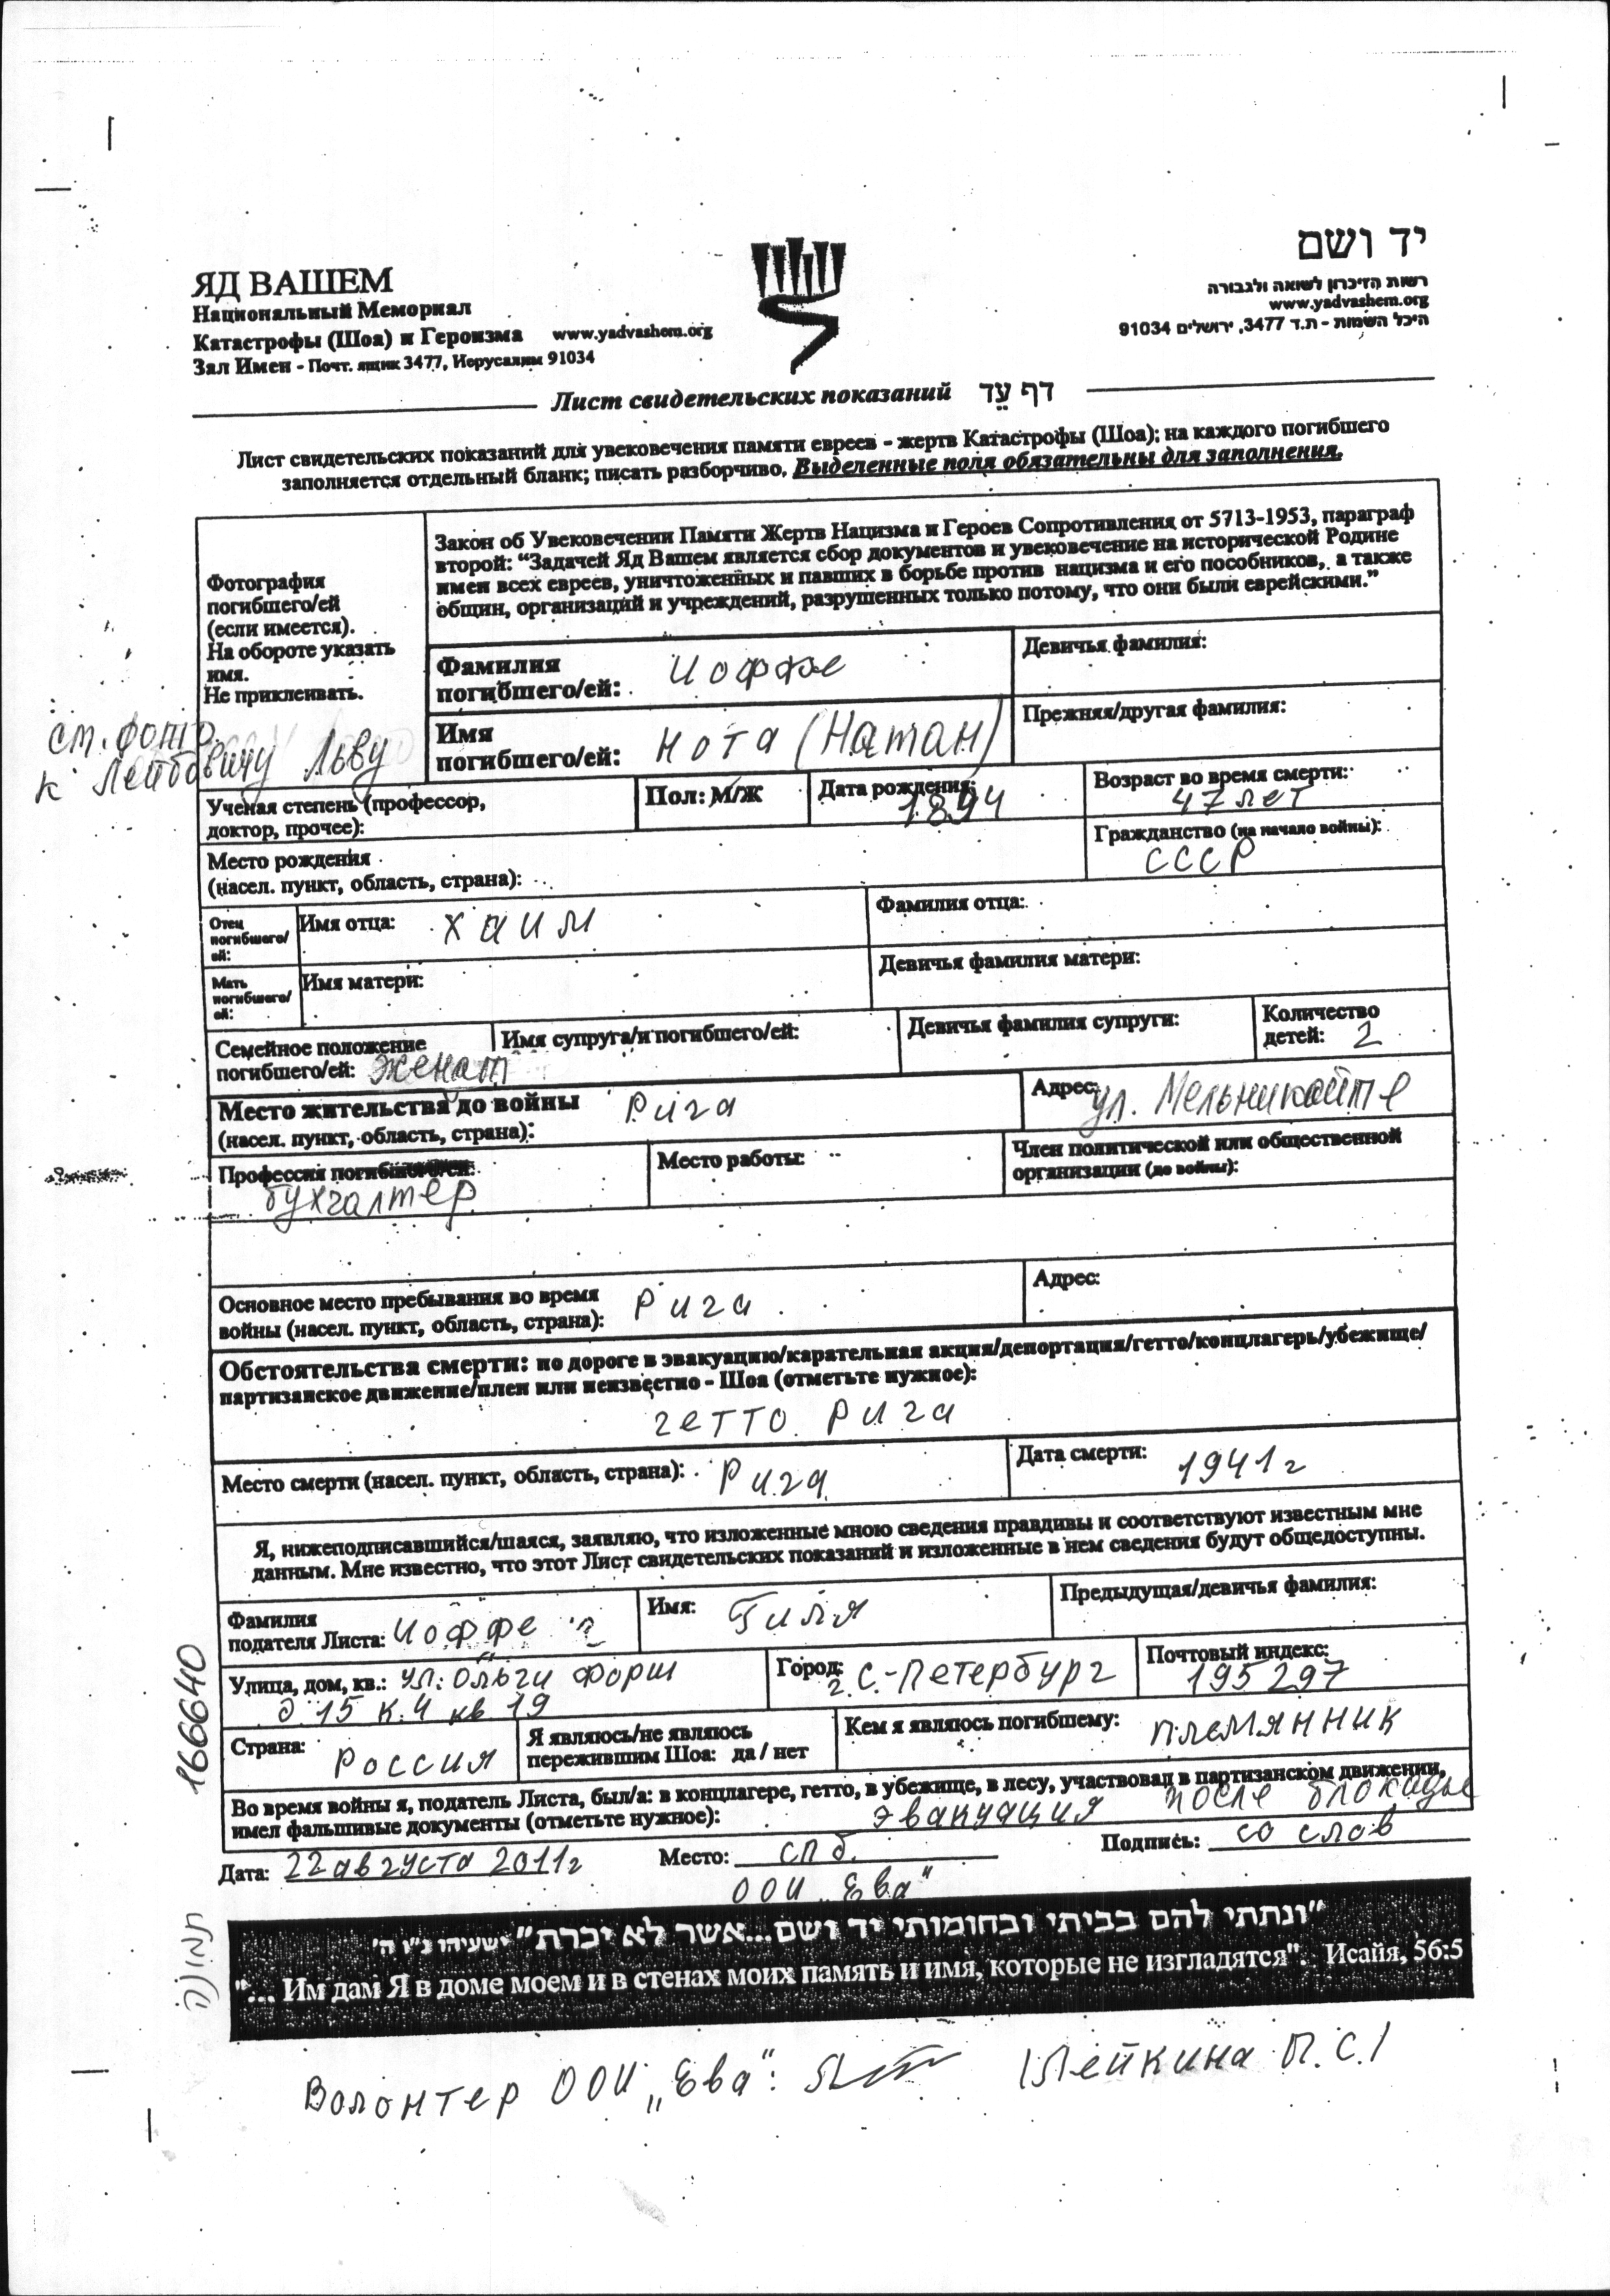 ЯД ВАШЕМ
Национальный Мемориал
Катастрофы (Шоа) и Героизма www.yadvashem.org
Зал Имен - Почт. ящик 3477, Иерусалим 91034
יד ושם
רשות הזיכרון לשואה ולגבורה
www.yadvashem.org
היכל השמות - ת.ד 3477, ירושלים 91034
Лист свидетельских показаний דף עד
Лист свидетельских показаний для увековечения памяти евреев - жертв Катастрофы (Шоа); на каждого погибшего
заполняется отдельный бланк; писать разборчиво. Выделенные поля обязательны для заполнения.
Фотография
погибшего/ей
(если имеется).
На обороте указать
имя.
Не приклеивать.
см. фото
к Лейбовичу Льву
Закон об Увековечении Памяти Жертв Нацизма и Героев Сопротивления от 5713-1953, параграф
второй: “Задачей Яд Вашем является сбор документов и увековечение на исторической Родине
имен всех евреев, уничтоженных и павших в борьбе против нацизма и его пособников, а также
общин, организаций и учреждений, разрушенных только потому, что они были еврейскими.”
Фамилия
погибшего/ей: Иоффе
Девичья фамилия:
Имя
погибшего/ей: Нота (Натан)
Прежняя/другая фамилия:
Ученая степень (профессор,
доктор, прочее):
Пол: М/Ж
Дата рождения: 1894
Возраст во время смерти:
47 лет
Место рождения
(насел. пункт, область, страна):
Гражданство (на начало войны):
СССР
Отец
погибшего/
ей:
Имя отца: Хаим
Фамилия отца:
Мать
погибшего/
ей:
Имя матери:
Девичья фамилия матери:
Семейное положение
погибшего/ей: женат
Имя супруга/и погибшего/ей:
Девичья фамилия супруги:
Количество
детей: 2
Место жительства до войны Рига
(насел. пункт, область, страна):
Адрес: ул. Мельникайте
Профессия погибшего/ей:
бухгалтер
Место работы:
Член политической или общественной
организации (до войны):
Основное место пребывания во время
войны (насел. пункт, область, страна): Рига
Адрес:
Обстоятельства смерти: по дороге в эвакуацию/карательная акция/депортация/гетто/концлагерь/убежище/
партизанское движение/плен или неизвестно - Шоа (отметьте нужное):
гетто Рига
Место смерти (насел. пункт, область, страна): Рига
Дата смерти: 1941г
Я, нижеподписавшийся/шаяся, заявляю, что изложенные мною сведения правдивы и соответствуют известным мне
данным. Мне известно, что этот Лист свидетельских показаний и изложенные в нем сведения будут общедоступны.
Фамилия
подателя Листа: Иоффе
Имя: Гиля
Предыдущая/девичья фамилия:
Улица, дом, кв.: ул. Ольги Форш
д. 15 к. 4 кв 19
Город: г. С.-Петербург
Почтовый индекс:
195297
Страна: Россия
Я являюсь/не являюсь
пережившим Шоа: да / нет
Кем я являюсь погибшему: племянник
Во время войны я, податель Листа, был/а: в концлагере, гетто, в убежище, в лесу, участвовал в партизанском движении,
имел фальшивые документы (отметьте нужное): эвакуация после блокады
Дата: 22 августа 2011г
Место: СПб.
ООИ „Ева"
Подпись: со слов
1666640
"ונתתי להם בביתי ובחומותי יד ושם...אשר לא יכרת" ישעיהו נ"ו ה'
"... Им дам Я в доме моем и в стенах моих память и имя, которые не изгладятся". Исайя, 56:5
Волонтер ООИ „Ева": /Лейкина П.С./